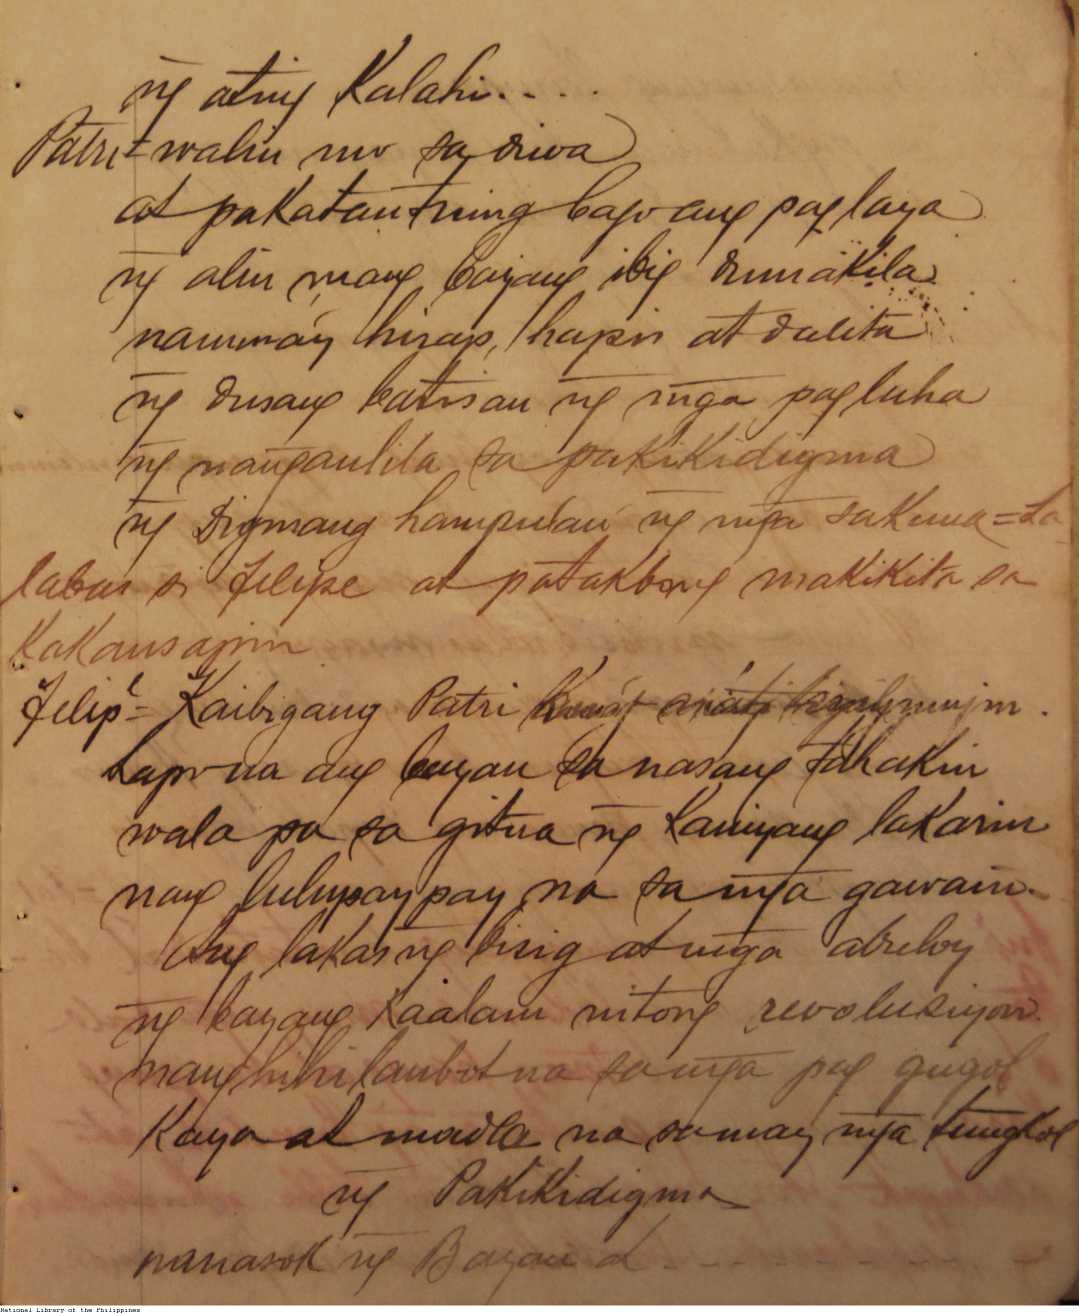 ng ating Kalahi....
Patri = waliu mo sa diwa
at pakatantuing bago ang pag laya
ng alin mang bayang ibig dumakila
naunmáy hirap, hapis at dalita
ng dusang batisan ng mga pagluha
ng nangaulila sa pakikidigma
ng Digmaang hampulan ng mga sakuna = La
labas si Felipe at patakbong makikita sa
Kakausapin
Felip = Kaibigang Patri
Lapo na ang bayan sa nasang tahakin
wala pa sa gitna ng Kaniyang lakarin
nag lulupaypay na sa mga gawain.
Ang lakas ng bisig at mga abuloy
ng bayang Kaalam nitong revolusiyon.
manghihilaubot na sa mga pag gugol
Kaya at madla na sa may mga tungkol
ng Pakikidigma
nanasok ng Bayan d..........